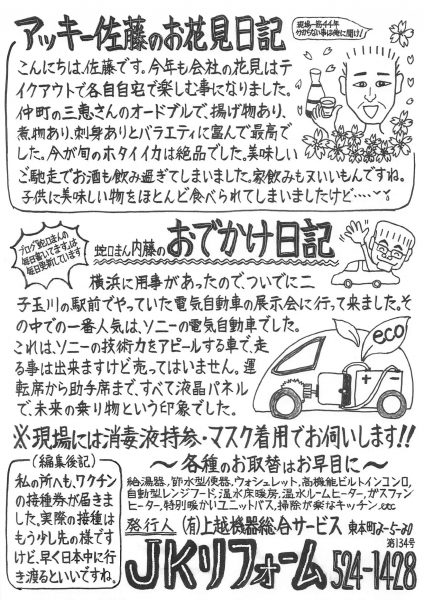 アッキー佐藤のお花見日記
現場一筋44年
分からない事は俺に聞け!
こんにちは、佐藤です。今年も会社の花見はテ
イクアウトで各自自宅で楽しむ事になりました。
仲町の三恵さんのオードブルで、揚げ物あり、
煮物あり、刺身ありとバラエティに富んで最高で
した。今が旬のホタイイカは絶品でした。美味しい
ご馳走でお酒も飲み過ぎてしまいました。家飲みもヌいいもんですね。
子供に美味しい物をほとんど食べられてしまいましたけど…
ブログ「蛇口まんの
毎日書いてます」は
毎日更新しています
蛇口まん内藤のおでかけ日記
横浜に用事があったのでついでに二
子玉川の駅前でやっていた電気自動車の展示会に行って来ました。そ
の中での一番人気は、ソニーの電気自動車でした。
これは、ソニーの技術力をアピールする車で、走
る事は出来ますけど売ってはいません。運
転席から助手席まで、すべて液晶パネル
で、未来の乗り物という印象でした。
eco
※現場には消毒液持参・マスク着用でお伺いします!!
(編集後記)
私の所へも、ワクチン
の接種券が届きま
した。実際の接種は
もう少し先の様です
けど、早く日本中に行
き渡るといいですね。
～各種のお取替はお早目に～
給湯器、節水型便器、ウォシュレット、高機能ビルトインコンロ、
自動型レンジフード、温水床暖房、温水ルームヒーター、ガスファン
ヒーター、特別暖かいユニットバス、掃除が楽なキッチン.etc
発行人 (有)上越機器総合サービス 東本町2-5-20
第134号
JKリフォーム 524-1428